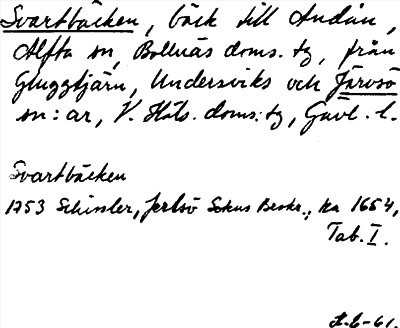 Svartbäcken, bäck till Andån,
Alfta sn, Bollnäs doms. tg, från
Gluggtjärn, Undersviks och Järvsö
sn:ar, V. Häls. doms. tg, Gävl. l.
Svartbäcken
1753 Schissler, Jerfsö Sokns Beskr., ka 1654,
Tab. I.
-61.